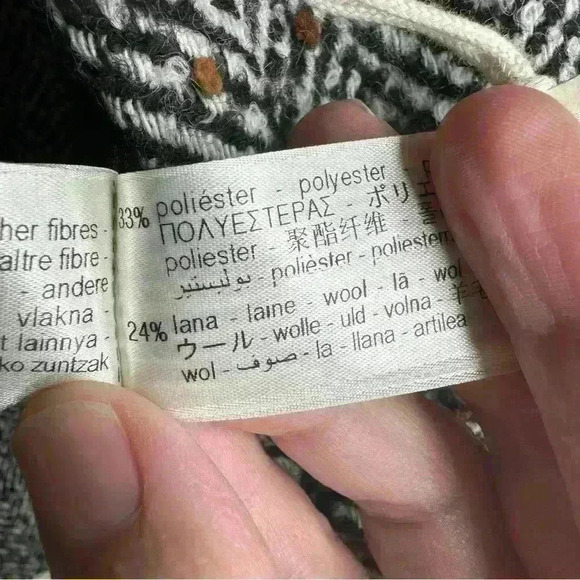 her fibres -
altre fibre -
- andere
vlakna -
t lainnya -
ko zuntzak
33% poliéster - polyester -
ΠΟΛΥΕΣΤΕΡΑΣ - ポリ
poliester - 聚酯纤维
بوليستير - polièster - poliester
24% lana - laine - wool - lã - wol
ウール - wolle - uld - volna - 羊毛
wol - صوف - la - llana - artilea